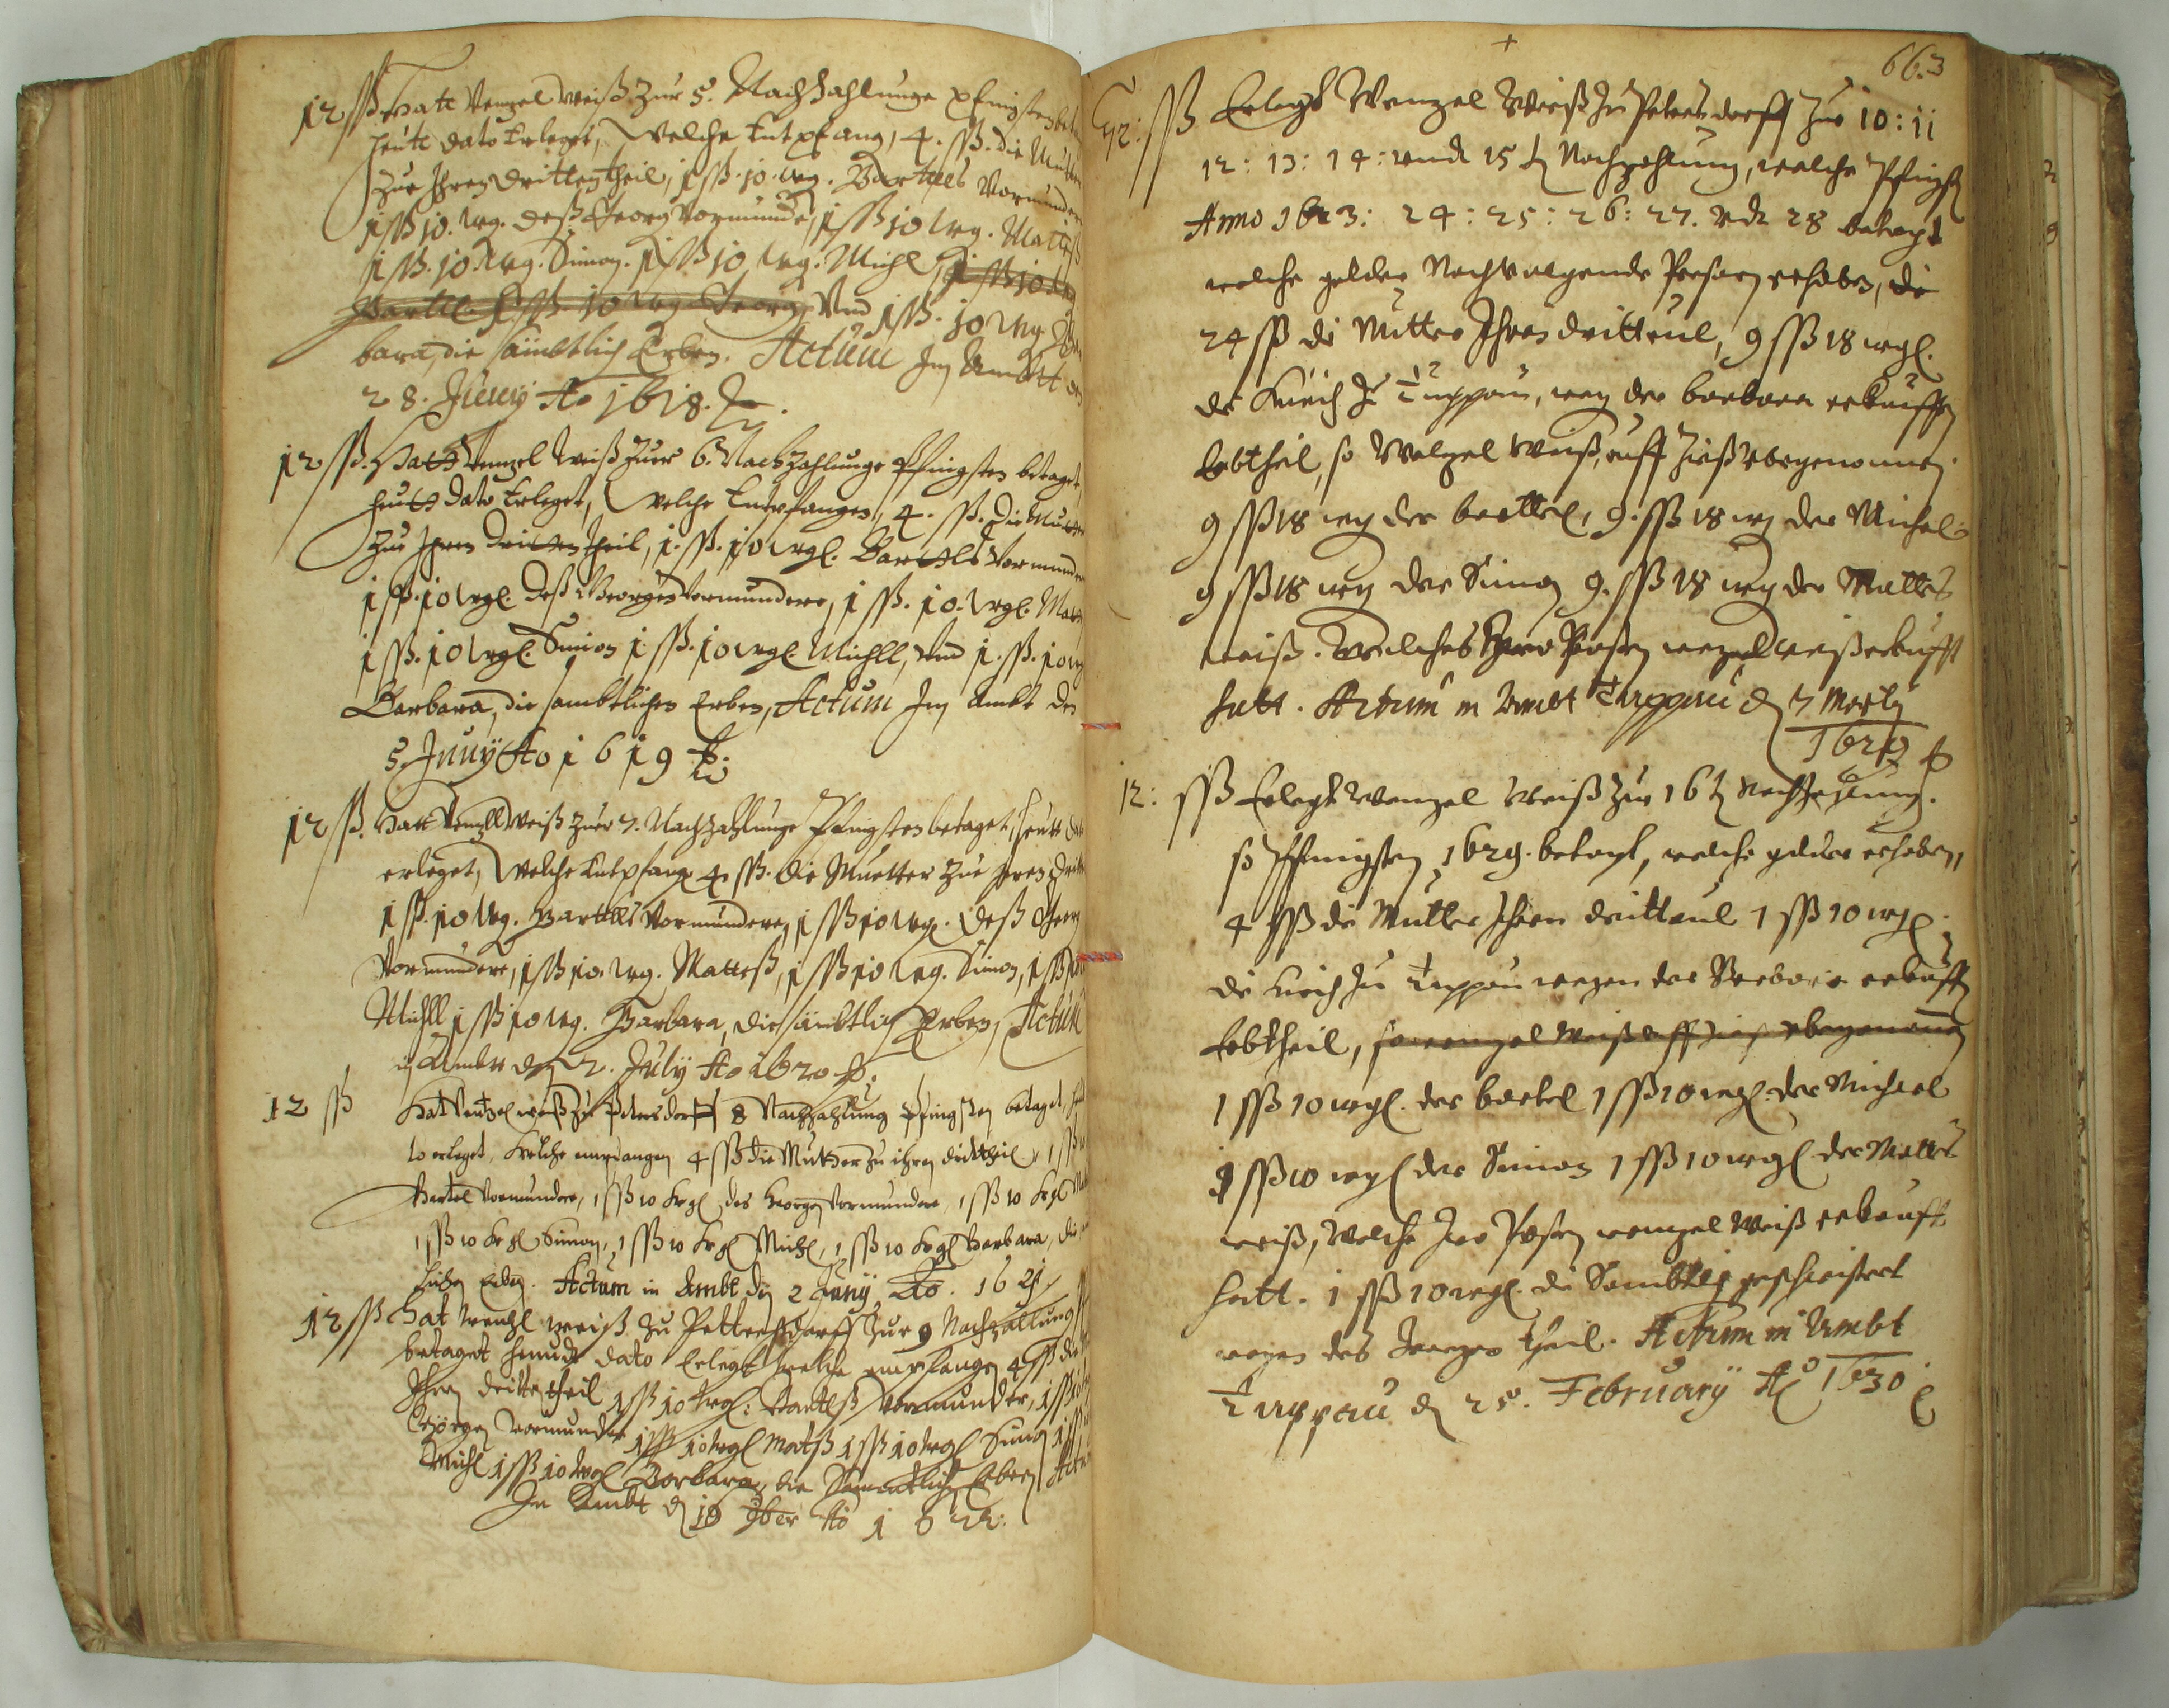 12 ſß. Hatt Venzel Weiß Zur 5. Nachzahlunge Pfingsten
heute dato Erleget, Welche Entpfang, 4. ſß. die Mutter
Zue Ihren dritten theil, 1 ſß. 10. wg. Barttels Vormunder
1 ſß 10. wg. deß Georg Vormunde, 1 ſß 10 wg. Matteß
1 ſß. 10. wg. Simon. 1 ſß 10 wg. Michl, 1 ſß 10
Barttel 1 ſß. 10 wg Georg Vnd 1 ſß. 10 wg
bara, die sämbtlich Erben. Actum Im Ambtt
28. Juny Ao 1618.
12 ſß. Hatt Venzel Weiß Zuer 6. Nachzahlunge Pfingsten betaget
heutt dato Erleget, Welche Entpfangen, 4. ſß. die Mutter
Zue Ihren dritten theil, 1. ſß. 10 wgl. Barttels Vormunder
1 ſß. 10 wgl. deß Georgen Vormundere, 1 ſß. 10. wgl.
1 ſß. 10 wgl. Simon 1 ſß. 10 wgl. Michll, vnd 1. ſß. 10 wg
Barbara, die sambtlichen Erben, Actum Im Ambt den
5. Juny Ao 1619
12 ſß. Hatt Venzll Weiß Zuer 7. Nachzahlunge Pfingsten betaget, heutt
erleget, Welche Entpfang 4 ſß. die Muetter Zue Ihren
1 ſß. 10 wg. Barttels Vormundere, 1 ſß 10 wg. deß Georg
Vormundere, 1 ſß 10. wg. Matteß, 1 ſß 10 wg. Simon, 1 ſß
Michll 1 ſß 10 wg. Barbara, die sämbtlich Erben, Actum
Ambtt den 2. July Ao 1620
12 ſß Hat Ventzel weiß Zu Petersdorff 8 Nachzahlung Pfingsten betaget
to erleget, Welche empfangen 4 ſß die Mutter Zu ihren dritttheil, 1 ſß
Bartel Vormundere, 1 ſß 10 kgl des Georgen Vormundere, 1 ſß 10 kgl
1 ſß 10 kgl Simon, 1 ſß 10 kgl Michl, 1 ſß 10 kgl Barbara, die
lichen Erben. Actum in Ambt den 2 Juny Ao. 1621
12 ſß Hat Wenzl weiß zu Petterßdorff Zur 9 Nachzallung
betaget heundt dato Erlegt welche empfangen 4 ſß die
Ihren dritten theil 1 ſß 10 kgl: Bartlß Vormunder, 1 ſß
Georgen Vormunder 1 ſß 10 kgl Matß 1 ſß 10 kgl Simon 1 ſß
Michl 1 ſß 10 kgl Barbara, die Samentlich Erben Actum
In Ambt den 10 Ao 1622:
663
72: ſß Erlegt Wenzel Weiß Zu Petersdorff Zur 10: 11
12: 13: 14: vnd 15 Nachzehlung, welche Pfingsten
Anno 1623: 24: 25: 26: 27. vnd 28 betagt
welche gelder Nachvolgende Persohn erhoben, die
24 ſß die Mutter Ihren dritteul, 9 ſß 18 wgl.
die Kirch Zu Tuppau, weg der barbara erkaufften
Erbtheil, so Welzel Weiß, auff Zinß vbergenommen.
9 ſß 18 wg der barttel, 9. ſß 18 wg der Michel
9 ſß 18 wg der Simon 9. ſß 18 wg der Mattes
weiß. Welches Posten wenzel weiß erkaufft
hatt. Actum in Ambt Tuppau den 7 Marty
1629
12: ſß Erlegt Wenzel Weiß Zur 16 Nachzehlung.
so Pfingsten 1629. betagt, welche gelder erhoben,
4 ſß die Mutter Ihren dritteul 1 ſß 10 wgl.
die Kirch Zu Tuppau wegen der Barbara erkaufften
Erbtheil, so wenzel Weiß auff Zinß vbergenommen
1 ſß 10 wgl. der bartel 1 ſß 10 wgl. der Michael
1 ſß 10 wgl der Simon 1 ſß 10 wgl. der Mattes
weiß, Welche Zwo Posten wenzel Weiß erkaufft
hatt. 1 ſß 10 wgl. die Sembtlig geschwistert
wegen des theil. Actum in Ambt
Tuppau den 25. February Ao 1630